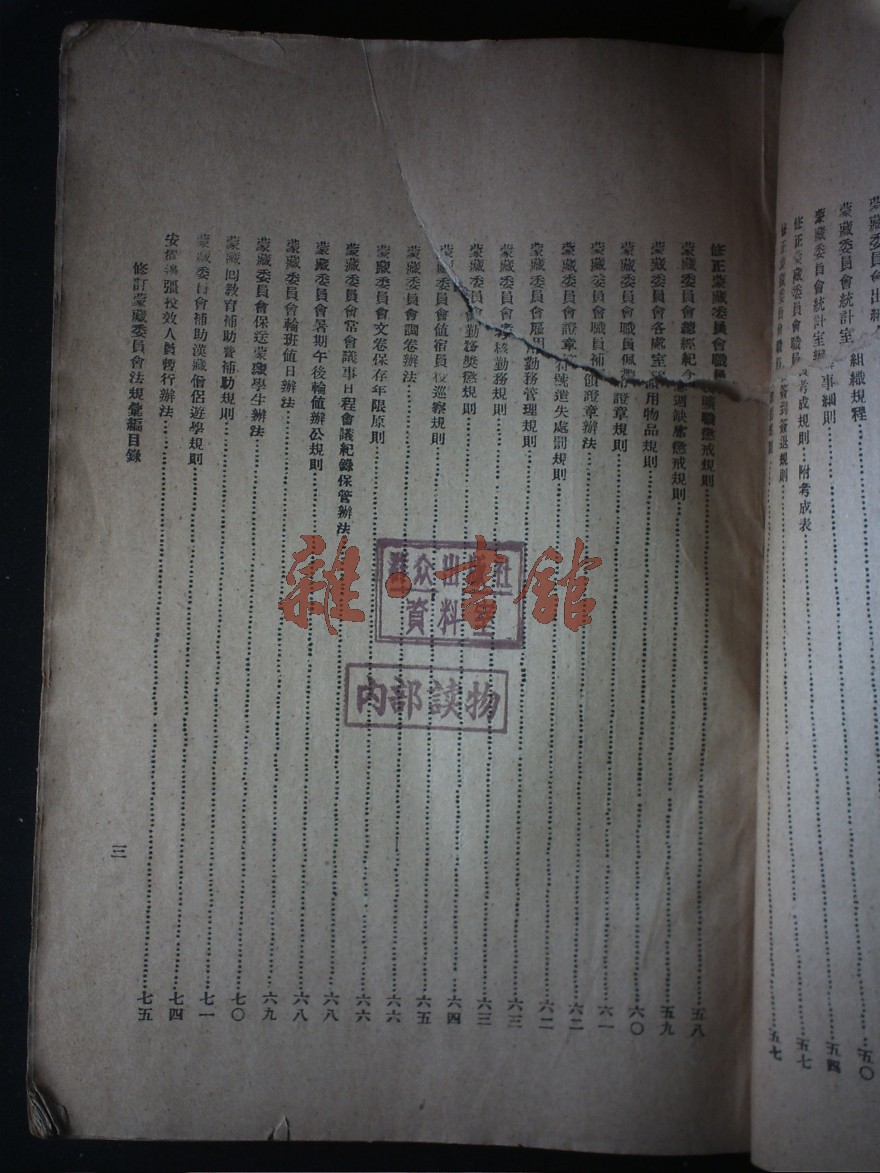 蒙藏委員會統計室
組織規程……五〇
蒙藏委員會統計室辦事細則……五四
修正蒙藏委員會職員考成規則 附考成表……五七
簽到簽退規則……五七
修正蒙藏委員會職員曠職懲戒規則……五八
蒙藏委員會總經紀念週缺席懲戒規則……五九
蒙藏委員會各處室領用物品規則……六〇
蒙藏委員會職員佩帶證章規則……六一
蒙藏委員會職員補領證章辦法……六二
蒙藏委員會證章符號遺失處罰規則……六二
蒙藏委員會雇用勤務管理規則……六三
蒙藏委員會考核勤務規則……六三
蒙藏委員會勤務獎懲規則……六四
蒙藏委員會值宿員役巡察規則……六五
蒙藏委員會調卷辦法……六六
蒙藏委員會文卷保存年限原則……六六
蒙藏委員會常會議事日程會議紀錄保管辦法……六八
蒙藏委員會暑期午後輪值辦公規則……六八
蒙藏委員會輪班值日辦法……六九
蒙藏委員會保送蒙藏學生辦法……七〇
蒙藏回教育補助費補助規則……七一
蒙藏委員會補助漢藏僧侶遊學規則……七四
安撫張投效人員暫行辦法……七五
修訂蒙藏委員會法規彙編目錄
三
群众出版社
資料室
内部读物
雜·書館